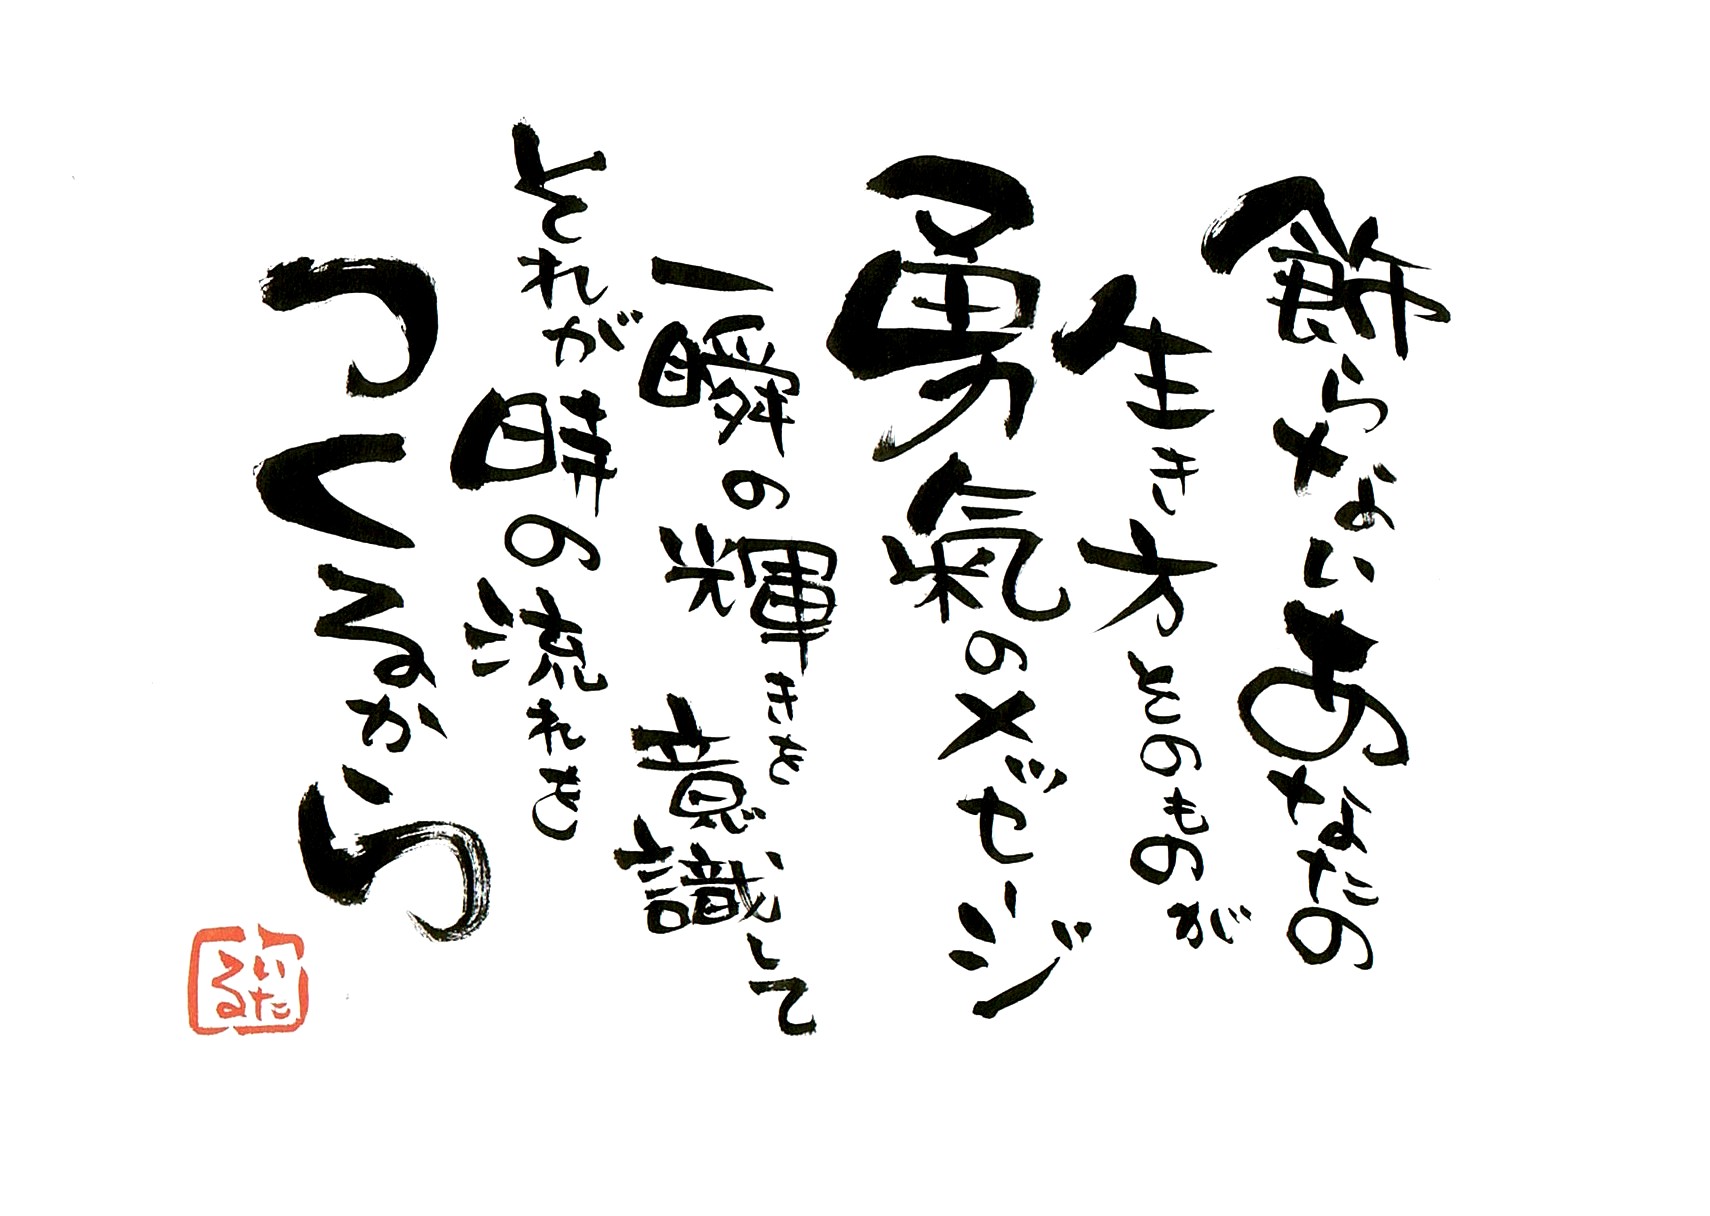 飾らないあなたの
生き方そのものが
勇氣のメッセージ
一瞬の輝きを意識して
それが時の流れを
つくるから
いたる